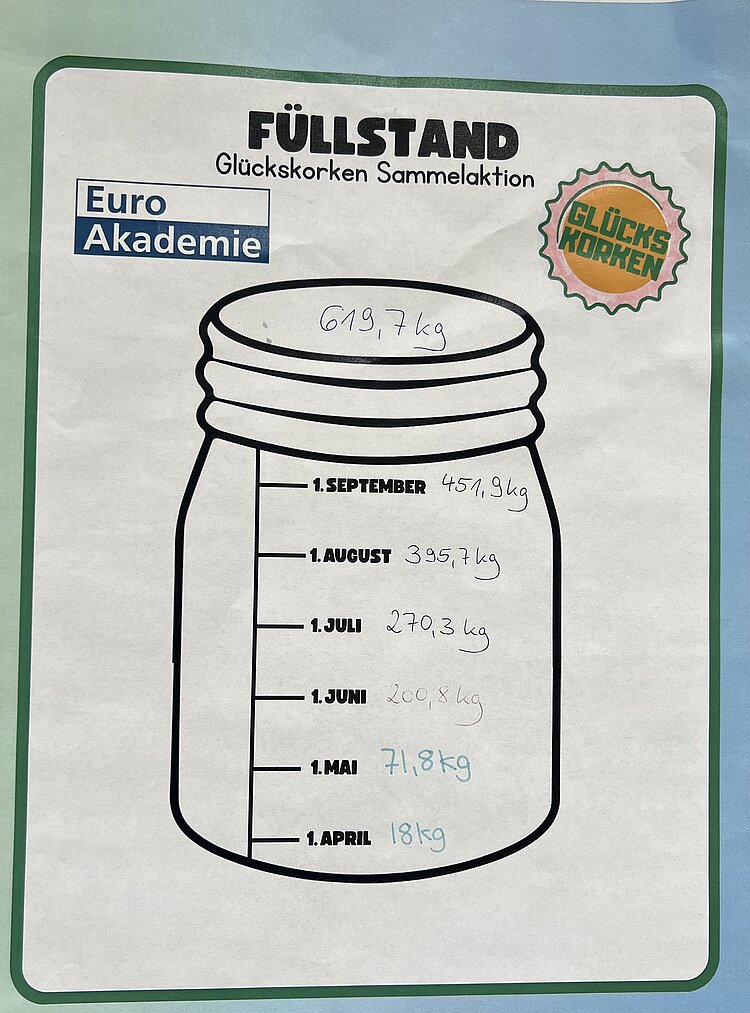 FÜLLSTAND
Glückskorken Sammelaktion
Euro
Akademie
GLÜCKS
KORKEN
619,7 kg
1. SEPTEMBER 451,9 kg
1. AUGUST 395,7 kg
1. JULI 270,3 kg
1. JUNI 200,8 kg
1. MAI 71,8 kg
1. APRIL 18 kg